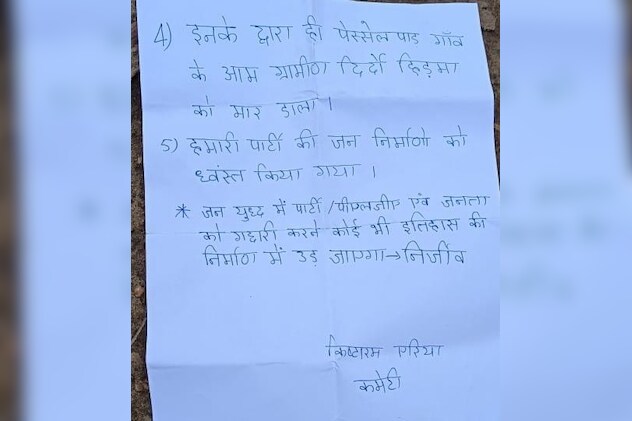 4) इनके द्वारा ही पेसेलपाड गाँव
के आम ग्रामीण दिर्दो हिड़मा
को मार डाला।
5) हमारी पार्टी की जन निर्माणो को
ध्वंस्त किया गया।
* जन युध्द में पार्टी/पीएलजीए एवं जनता
को गद्दारी करने कोई भी इतिहास की
निर्माण में उड़ जाएगा→निर्जीव
किष्टारम एरिया
कमेटी